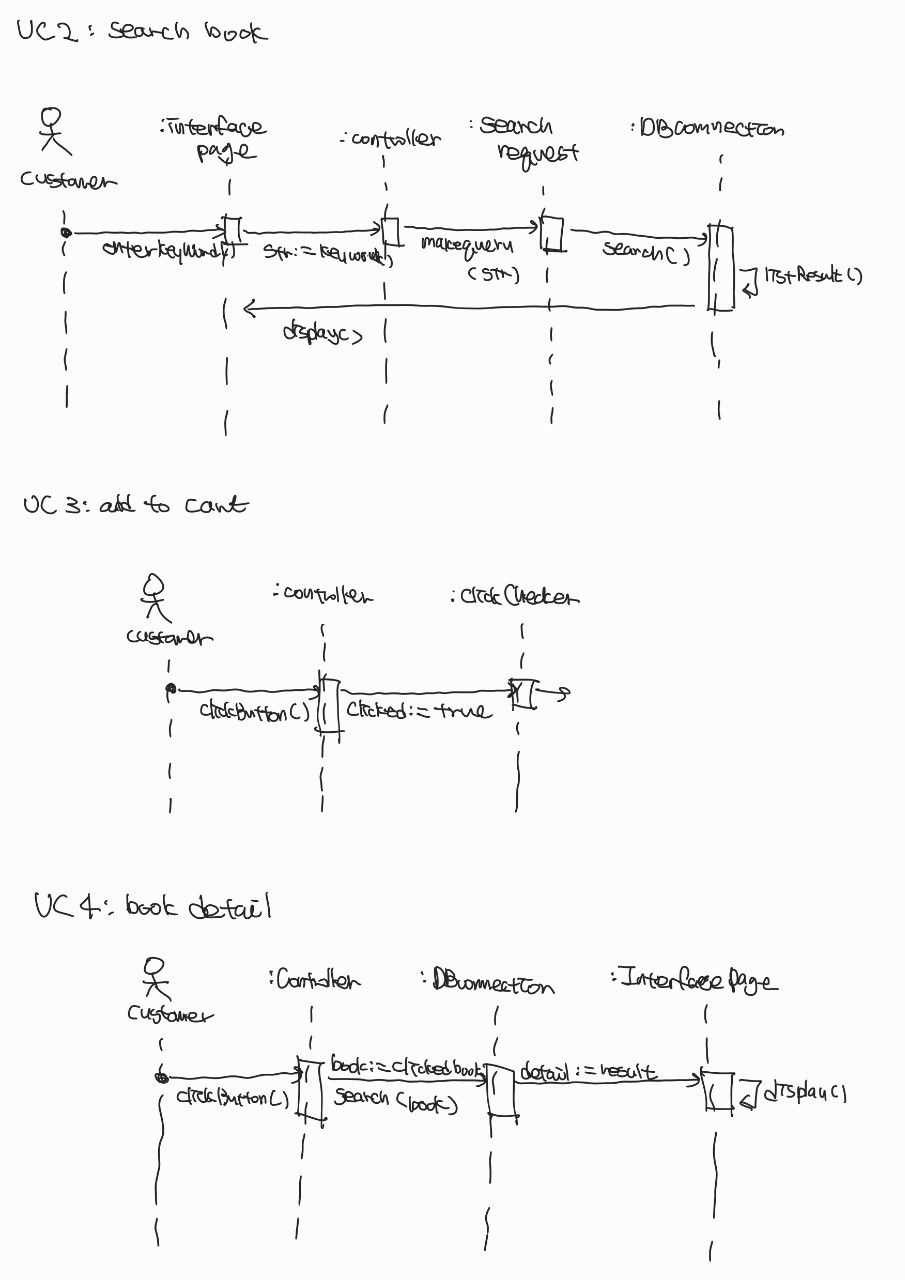 UC2: search book
:interface
page
:controller
:search
request
:DBconnection
customer
enterkeyword()
str:=keyword()
makequery
(str)
search()
listResult()
display()
UC3: add to cart
:controller
:clickChecker
customer
clickButton()
clicked:=true
UC4: book detail
:Controller
:DBconnection
:Interface page
customer
clickButton()
book:=clickedbook
search(book)
detail:=result
display()